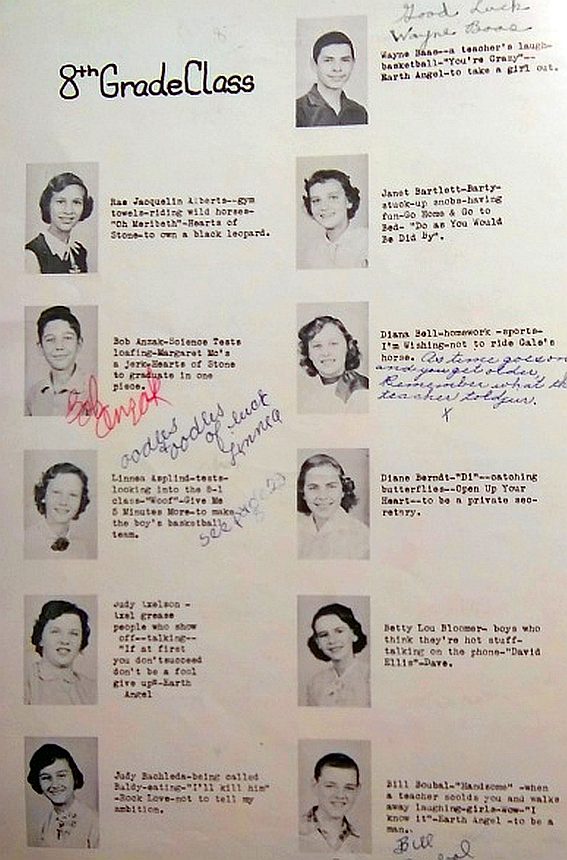 8th Grade Class
Good Luck
Wayne Baas
Wayne Baas--a teacher's laugh-
basketball-"You're Crazy"--
Earth Angel-to take a girl out.
Rae Jacquelin Alberts--gym
towels-riding wild horses-
"Oh Meribeth"-Hearts of
Stone-to own a black leopard.
Janet Bartlett-Barty-
stuck-up snobs-having
fun-Go Home & Go to
Bed- "Do as You Would
Be Did By".
Bob Anzak-Science Tests
loafing-Margaret Mc's
a jerk-Hearts of Stone
to graduate in one
piece.
Bob
Anzak
Diana Bell-homework -sports-
I'm Wishing-not to ride Gale's
horse. As time goes on
and you get older,
Remember what the
teacher told yur.
X
oodles
& oodles
of luck
Linnea
see page 23
Linnea Asplind-tests-
looking into the 8-1
class-"Woof"-Give Me
5 Minutes More-to make
the boy's basketball
team.
Diane Berndt-"Di"--catching
butterflies--Open Up Your
Heart--to be a private sec-
retary.
Judy Axelson -
Axel grease
people who show
off--talking--
"If at first
you don'tsucceed
don't be a fool
give up"-Earth
Angel
Betty Lou Bloomer- boys who
think they're hot stuff-
talking on the phone-"David
Ellis"-Dave.
Judy Bachleda-being called
Baldy-eating-"I'll kill him"
-Rock Love-not to tell my
ambition.
Bill Boubal-"Handsome" -when
a teacher scolds you and walks
away laughing-girls-wow-"I
know it"-Earth Angel -to be a
man.
Bill